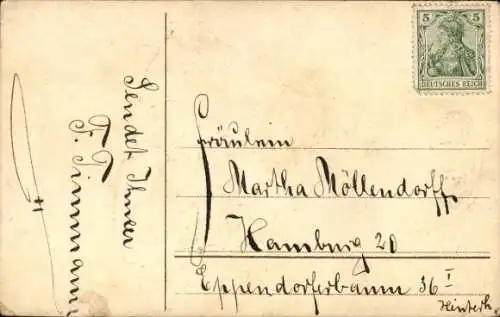 Sendet Ihnen
F. Timmann
5 5
DEUTSCHES REICH
Fräulein
Martha Möllendorff
Hamburg 20
Eppendorferbaum 36 I
Hinterh